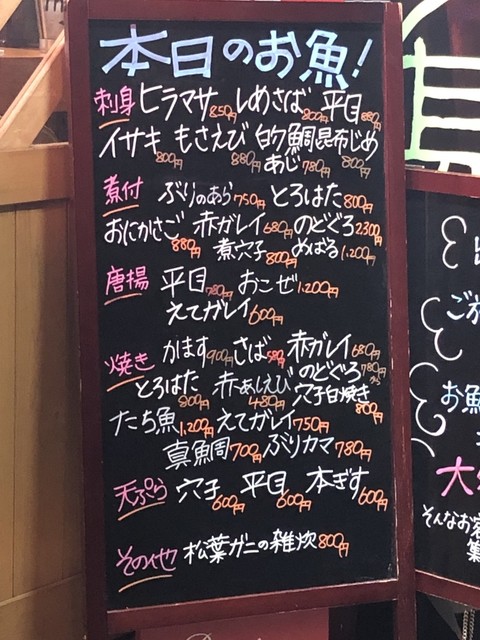 本日のお魚!
刺身 ヒラマサ850円 しめさば800円 平目880円
イサキ800円 もさえび880円 的鯛昆布じめ800円
あじ780円
煮付 ぶりのあら750円 とろはた800円
おにかさご880円 赤ガレイ680円 のどぐろ2300円
煮穴子800円 めばる1,200円
唐揚 平目780円 おこぜ1,200円
えてガレイ600円
焼き かます900円 さば580円 赤ガレイ680円
とろはた800円 赤あしえび480円 のどぐろ780円から
穴子白焼き800円
たち魚1,200円 えてガレイ750円
真鯛700円 ぶりカマ780円
天ぷら 穴子600円 平目600円 本ぎす600円
その他 松葉ガニの雑炊800円
ご
お魚
大
そんなお客